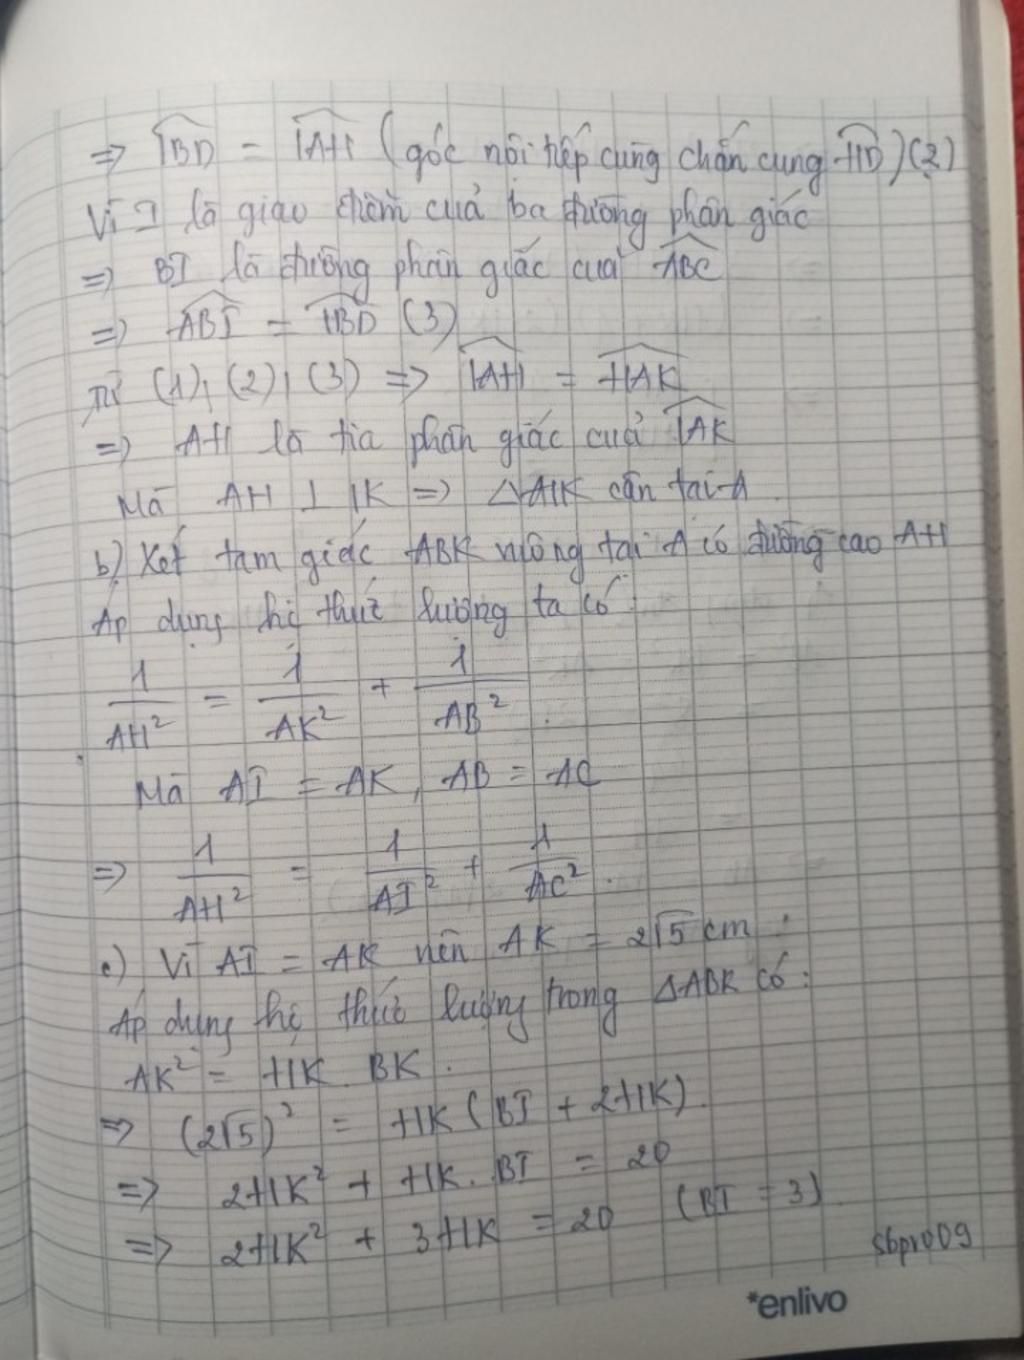 ⇒ \widehat{IBD} = \widehat{IAH} (góc nội tiếp cùng chắn cung \widehat{HD}) (2)
Vì I là giao điểm của ba đường phân giác
⇒ BI là đường phân giác của \widehat{ABC}
⇒ \widehat{ABI} = \widehat{HBD} (3)
Từ (1), (2), (3) ⇒ \widehat{IAH} = \widehat{HAK}
⇒ AH là tia phân giác của \widehat{IAK}
Mà AH ⊥ IK ⇒ ΔAIK cân tại A
b) Xét tam giác ABK vuông tại A có đường cao AH
Áp dụng hệ thức lượng ta có:
1/AH² = 1/AK² + 1/AB².
Mà AI = AK, AB = AC
⇒ 1/AH² = 1/AI² + 1/AC².
c) Vì AI = AK nên AK = 2√5 cm.
Áp dụng hệ thức lượng trong ΔABK có:
AK² = HK. BK.
⇒ (2√5)² = HK (BI + 2HK).
⇒ 2HK² + HK. BI = 20
⇒ 2HK² + 3HK = 20 (BI = 3)
sbpro09
*enlivo